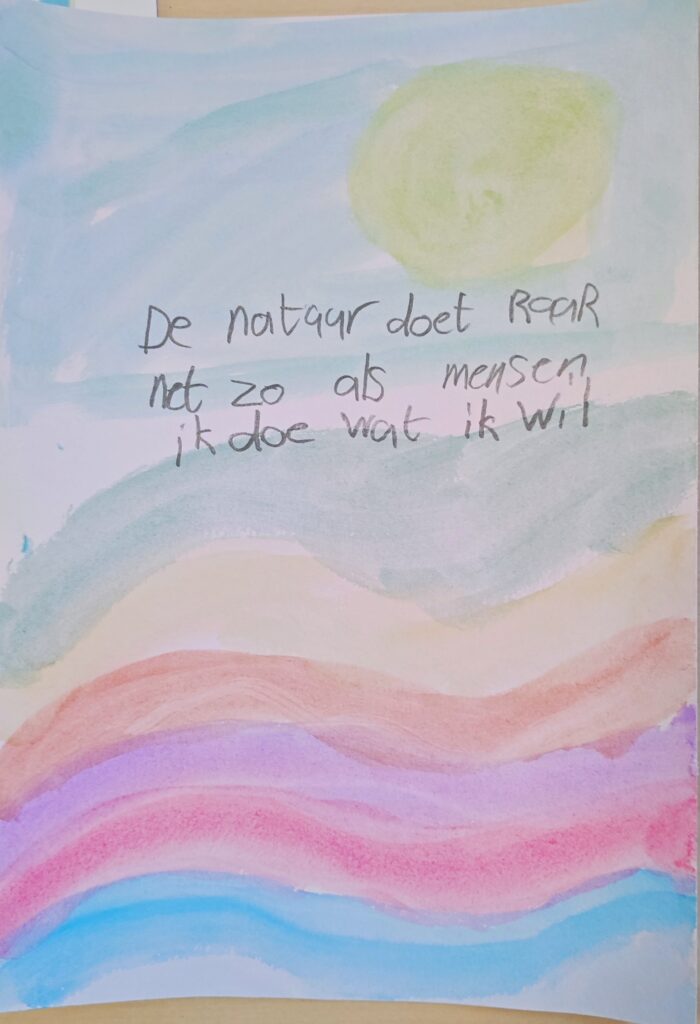 De natuur doet RaaR
net zo als mensen
ik doe wat ik wil